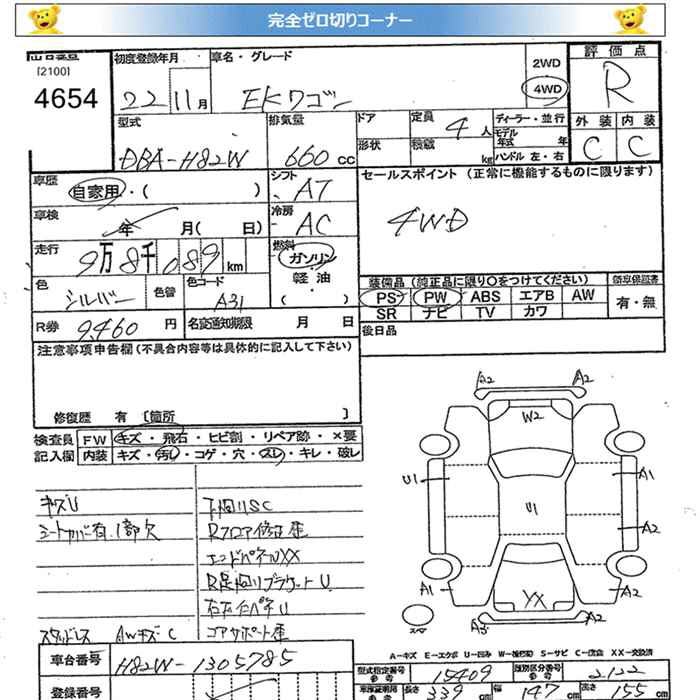 完全ゼロ切りコーナー
出品番号 初度登録年月 車名・グレード 2WD 評価点
[2100] 4WD R
4654 22 11月 EKワゴン
型式 排気量 ドア 定員 4人 ディーラー・並行 外装 内装
モデル年式 年
DBA-H82W 660cc 形状 積載 kg ハンドル 左・右 C C
車歴 自家用・( ) シフト AT セールスポイント (正常に機能するものに限ります)
車検 年 月( 日) 冷房 AC 4WD
走行 9万8千089km 燃料 ガソリン
軽油
・( )
装備品 (純正品に限り○をつけてください)
色 シルバー 色替 色コード A31 PS PW ABS エアB AW 有・無
SR ナビ TV カワ
R券 9,460円 名変通知期限 月 日 後日品
注意事項申告欄 (不具合内容等は具体的に記入して下さい)
修復歴 有 [箇所 ]
検査員 FW キズ・飛石・ヒビ割・リペア跡・×要
記入欄 内装 キズ・汚レ・コゲ・穴・スレ・キレ・破レ
キズU 下廻りSC
シートカバー有、1部欠 Rフロア修正歴
エンドパネルXX
スタッドレス AWキズ・C コアサポート歴
A2 A2
W2
U1 U1 A1
A2
A1 XX A2
A3 A2
スペア
A-キズ E-エクボ U-凹み W-補修跡 S-サビ C-腐食 XX-交換済
車台番号 H82W-1305785
型式指定番号 参考 15409 類別区分番号 参考 2122
登録番号
長さ 339cm 幅 147cm 高さ 155cm